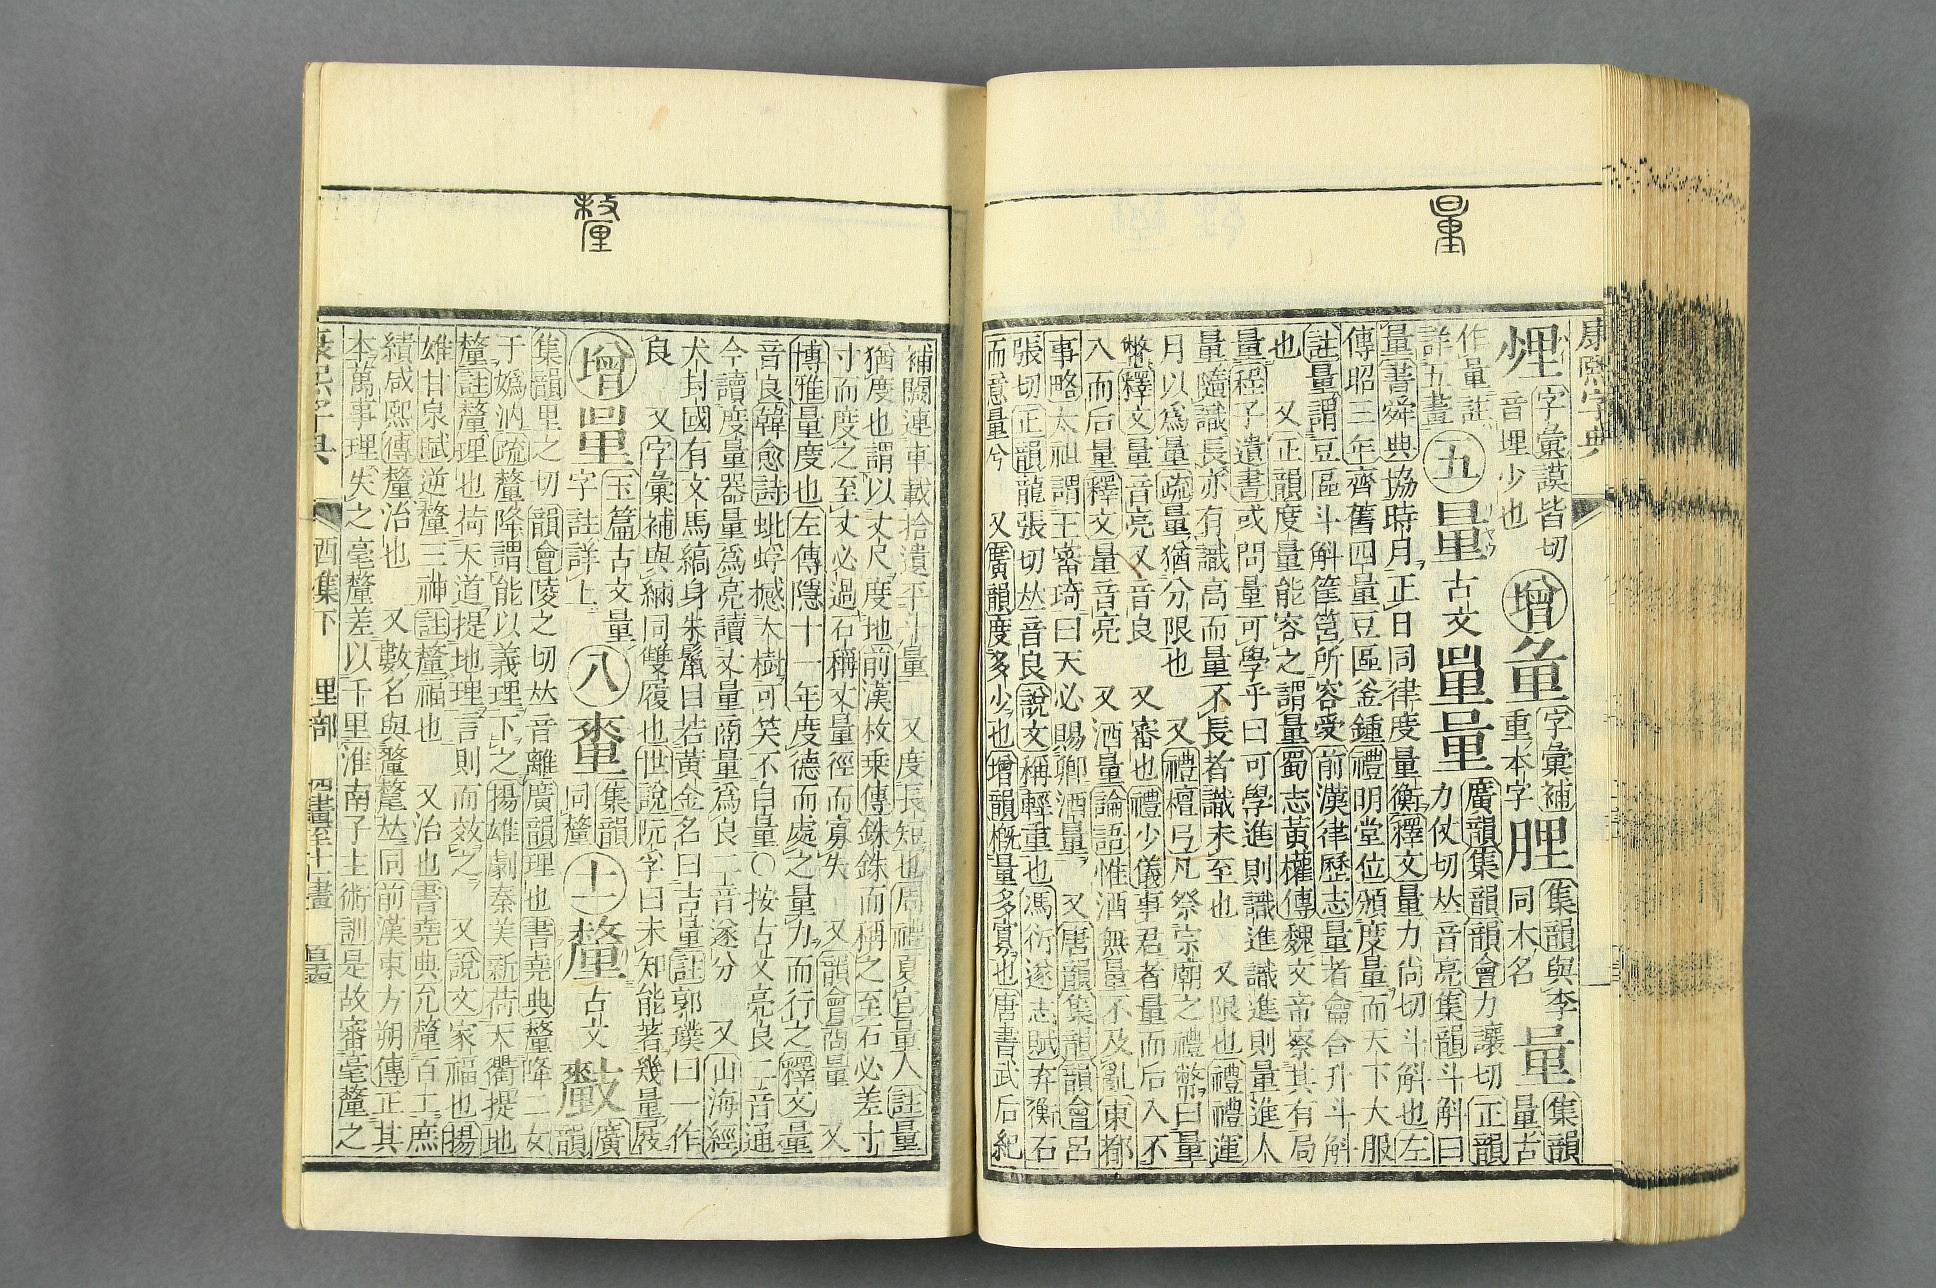 量
康熙字典
字彙謨皆切
音埋少也
增
重本字
字彙補
同木名
集韻與李
量古
集韻
作量註
詳五畫
五
量
古文
力仗切𠀤音亮集韻斗斛曰
廣韻集韻韻會力讓切正韻
量書舜典協時月正日同律度量衡釋文量力尚切斗斛也左
傳昭三年齊舊四量豆區釜鍾禮明堂位頒度量而天下大服
註量謂豆區斗斛筐筥所容受前漢律歷志量者龠合升斗斛
也 又正韻度量能容之謂量蜀志黃權傳魏文帝察其有局
量程子遺書或問量可學乎曰可學進則識進識進則量進人
量隨識長亦有識高而量不長者識未至也 又限也禮禮運
月以爲量疏量猶分限也 又禮檀弓凡祭宗廟之禮幣曰量
幣釋文量音亮又音良 又審也禮少儀事君者量而后入不
入而后量釋文量音亮 又酒量論語惟酒無量不及亂東都
事略太祖謂王審琦曰天必賜卿酒量 又唐韻集韻韻會呂
張切正韻龍張切𠀤音良說文稱輕重也馮衍遂志賦弃衡石
而意量兮 又廣韻度多少也增韻概量多寡也唐書武后紀
釐
補闕連車載拾遺平斗量 又度長短也周禮夏官量人註量
猶度也謂以丈尺度地前漢枚乗傳銖銖而稱之至石必差寸
寸而度之至丈必過石稱丈量徑而寡失 又韻會商量 又
博雅量度也左傳隱十一年度德而處之量力而行之釋文量
音良韓愈詩蚍蜉撼大樹可笑不自量○按古文亮良二音通
今讀度量器量爲亮讀丈量商量爲良二音遂分 又山海經
犬封國有文馬縞身朱鬣目若黃金名曰吉量註郭璞曰一作
良 又字彙補與緉同雙履也世說阮孚曰未知能著幾量屐
增
玉篇古文量
字註詳上
八
集韻
同釐
十一
釐
古文
廣
韻
集韻里之切韻會陵之切𠀤音離廣韻理也書堯典釐降二女
于嬀汭疏釐降謂能以義理下之揚雄劇秦美新荷天衢提地
釐註釐理也荷天道提地理言則而效之 又說文家福也揚
雄甘泉賦逆釐三神註釐福也 又治也書堯典允釐百工庶
績咸熙傳釐治也 又數名與氂𠀤同前漢東方朔傳正其
本萬事理失之毫釐差以千里淮南子主術訓是故審毫釐之
康熙字典 酉集下 里部 四畫至十一畫